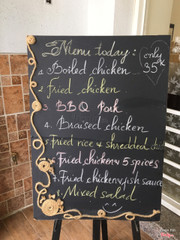 Menu today:
only
35k
1. Boiled chicken
2. Fried chicken
3. BBQ Pork
4. Braised chicken
5. Fried rice & shredded
6. Fried chicken 5 spices
7. Fried chicken fish sauce
8. Mixed salad